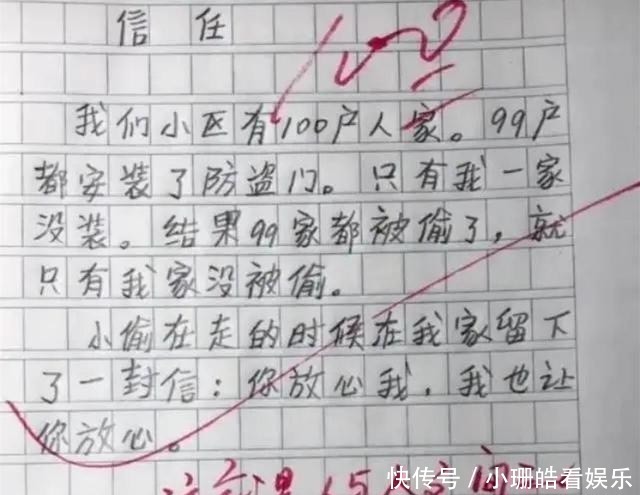 信任
100
我们小区有100户人家。99户
都安装了防盗门。只有我一家
没装。结果99家都被偷了，就
只有我家没被偷。
小偷在走的时候在我家留下
了一封信：你放心我，我也让
你放心。
快传号/小珊皓看娱乐